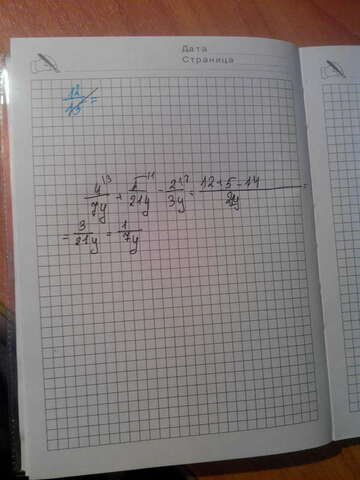 Дата
Страница
12/15 =
4^{\3}/7y + 5^{\1}/21y - 2^{\7}/3y = 12+5-14/21y =
= 3/21y = 1/7y